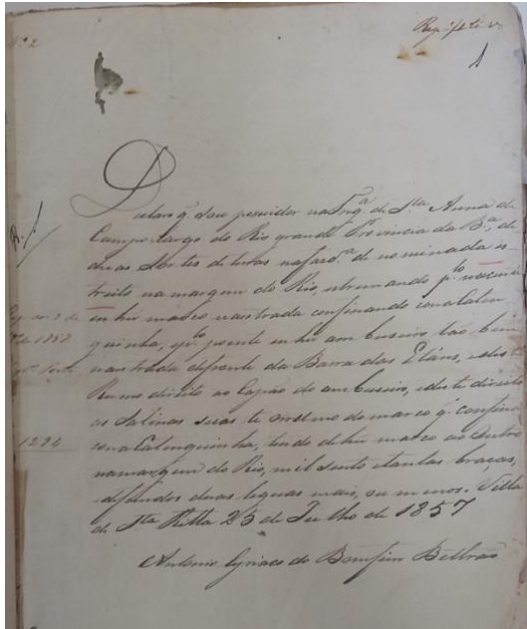 Nº 2
1
Declaro q. sou possuidor na Freg.ª de S.ta Anna de
Campo largo do Rio grande Provincia da B.ª, de
duas Sortes de terras na fasd.ª denominada es-
treito na margem do Rio, estremando p.lo nascente
em hum marco na estrada confinando com a Calen
guinha, e p.lo poente em hum ambuseiro tão bem
na estrada defronte da Barra das
Rumo direito ao Capão do ambuseiro, e deste direito
as Salinas te o mesmo do marco q. confina
com a Calenguinha, tendo de hum marco ao outro
na margem do Rio, mil cento e tantas braças,
e de fundos duas leguas mais, ou menos. Villa
de S.ta Ritta 25 de Julho de 1857
Antonio do Bomfim Beltrão
1294